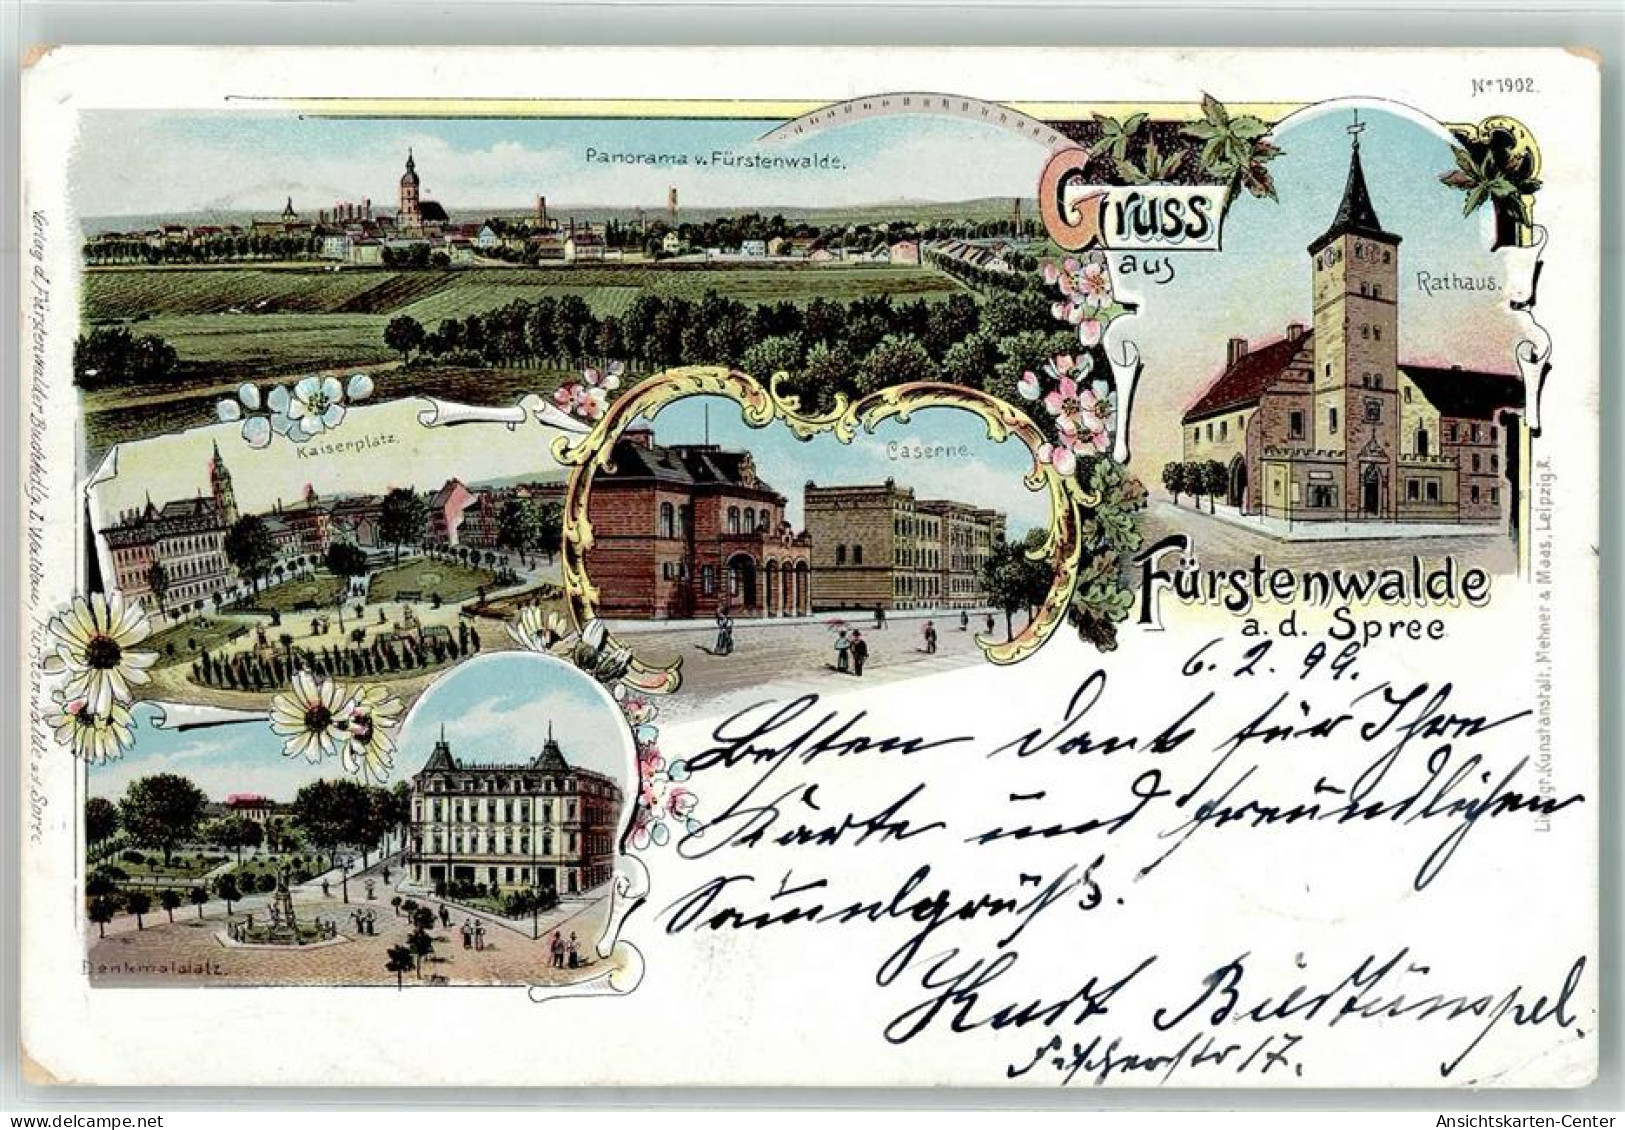 No 1902.
Panorama v. Fürstenwalde.
Gruss
aus
Rathaus.
Kaiserplatz.
Caserne.
Fürstenwalde
a. d. Spree
Denkmalplatz.
6. 2. 99.
Besten Dank für Ihre
Karte und freundlichen
Sammelgruß.
Kurt
Fischerstr 17.
Verlag d. Fürstenwalder Buchhdlg. Fürstenwalde a. d. Spree.
Lithogr. Kunstanstalt, Mehner & Maas, Leipzig, R.
Ansichtskarten-Center